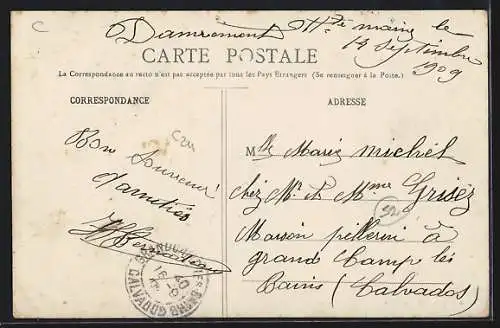 C
Damremont Hte marne le
CARTE POSTALE 14 Septembre
1909
La Correspondance au recto n'est pas acceptée par tous les Pays Etrangers (Se renseigner à la Poste.)
CORRESPONDANCE
ADRESSE
Bon Souvenir
d'amitiés
Mlle Marie Michel
chez Mr & Mme Grisez
Maison pellerin à
grand Camp les
Bains (Calvados)
CALVADOS